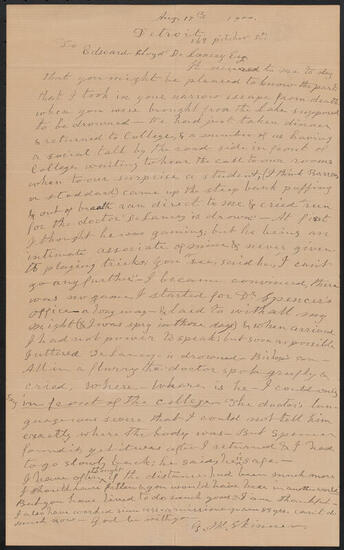 Aug 17th 1900.
Detroit
169 pitcher St
To Edward Floyd De Lancey Esq
It occured to me to day
that you might be pleased to know the part
that I took in your narrow escape from death
when you were brought from the Lake supposed
to be drowned - We had just taken dinner
& returned to College, & a number of us having
a social talk by the road side in front of
College waiting to hear the call to our rooms
when to our surprise a student, (I think Barrows
or Stoddard) came up the steep bank puffing
& out of breath ran direct to me & cried run
for the doctor De Lancey is drown - At first
I thought he was gaming, but he being an
intimate associate of mine & never given
to playing tricks, you see, said he, I can't
go any further - I became convinced, there
was no game, I started for Dr Spencer's
office - a long way - & laid to with all my
might (& I was spry in those days) & when arrived
I had not power to speak but soon as possible
I uttered De Lancey is drowned - Bishops son -
All in a flurry the doctor spoke gruffly &
cried, where - where is he - I could only
say in front of the College - The doctor's
language was severe that I could not tell him
exactly where the body was - But Spencer
found it, yet it was after I returned & I had
to go slowly back; he said he is safe -
I have often thought if the distance had been much more
I should have fallen & you would have been in another world
But you have lived to do much good & I am thankful -
I also have worked some years & can't do
much now - God be with you
G. M. Skinner